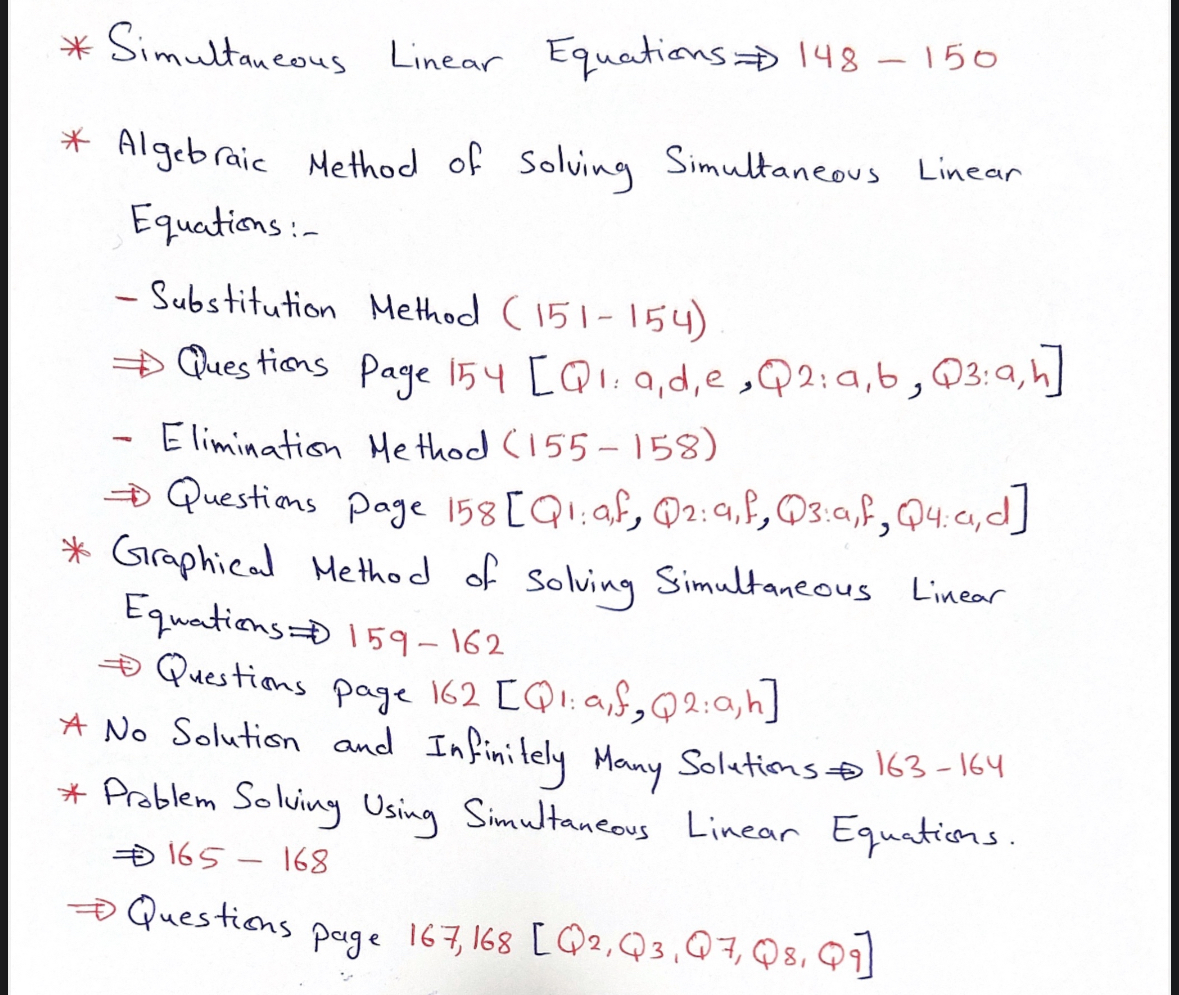 * Simultaneous Linear Equations ⇒ 148 - 150
* Algebraic Method of Solving Simultaneous Linear
Equations:-
- Substitution Method (151-154)
⇒ Questions Page 154 [Q1: a,d,e, Q2: a,b, Q3: a,h]
- Elimination Method (155-158)
⇒ Questions page 158 [Q1: a,f, Q2: a,f, Q3: a,f, Q4: a,d]
* Graphical Method of Solving Simultaneous Linear
Equations ⇒ 159-162
⇒ Questions page 162 [Q1: a,f, Q2: a,h]
* No Solution and Infinitely Many Solutions ⇒ 163-164
* Problem Solving Using Simultaneous Linear Equations.
⇒ 165 - 168
⇒ Questions page 167,168 [Q2, Q3, Q7, Q8, Q9]